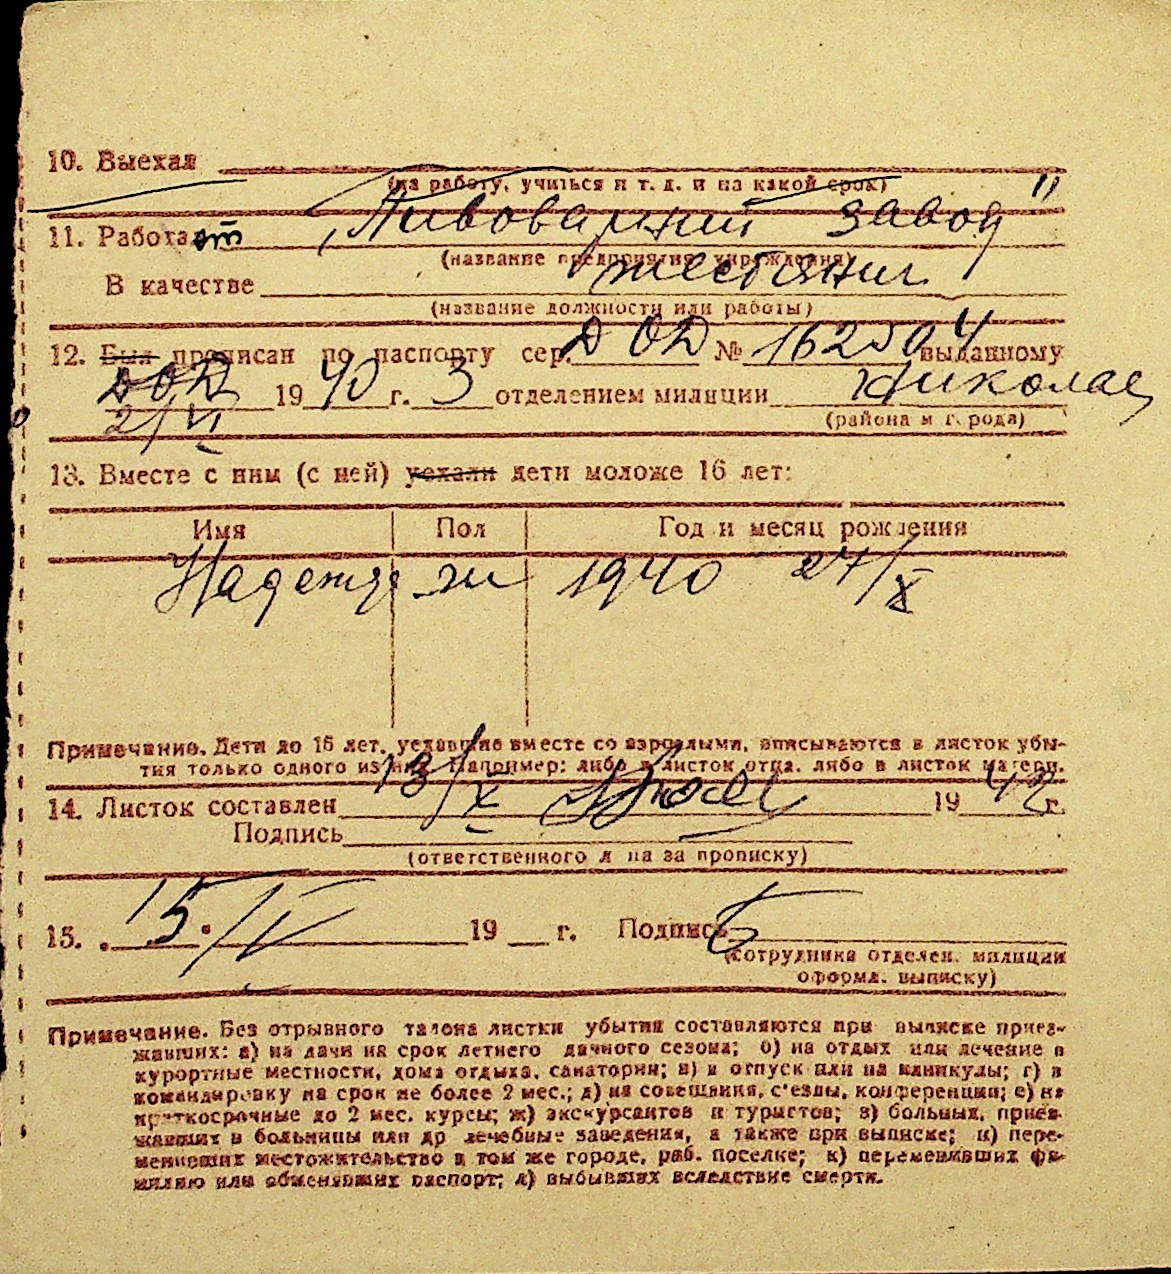 10. Выехал
(на работу, учиться и т. д. и на какой срок)
11. Работает „Пивоварний завод"
(название предприятия учреждения)
В качестве
(название должности или работы)
12. Был прописан по паспорту сер. ДОД № 162504 выданному
ДОД 1940 г. 3 отделением милиции Николаев
21/VI (района и города)
13. Вместе с ним (с ней) уехали дети моложе 16 лет:
Имя Пол Год и месяц рождения
Надежда ж 1940 27/X
Примечание. Дети до 16 лет, уехавшие вместе со взрослыми, вписываются в листок убы-
тия только одного из них. Например: либо в листок отца, либо в листок матери.
14. Листок составлен 13/X 1942 г.
Подпись
(ответственного лица за прописку)
15. 15. /V 19 г. Подпись
(сотрудника отделен. милиции
оформл. выписку)
Примечание. Без отрывного талона листки убытия составляются при выписке приез-
жавших: а) на дачи на срок летнего дачного сезона; б) на отдых или лечение в
курортные местности, дома отдыха, санатории; в) в отпуск или на каникулы; г) в
командировку на срок не более 2 мес.; д) на совещания, с'езды, конференции; е) на
краткосрочные до 2 мес. курсы; ж) экскурсантов и туристов; з) больных, приез-
жавших в больницы или др лечебные заведения, а также при выписке; и) пере-
менивших местожительство в том же городе, раб. поселке; к) переменивших фа-
милию или обменявших паспорт; л) выбывших вследствие смерти.